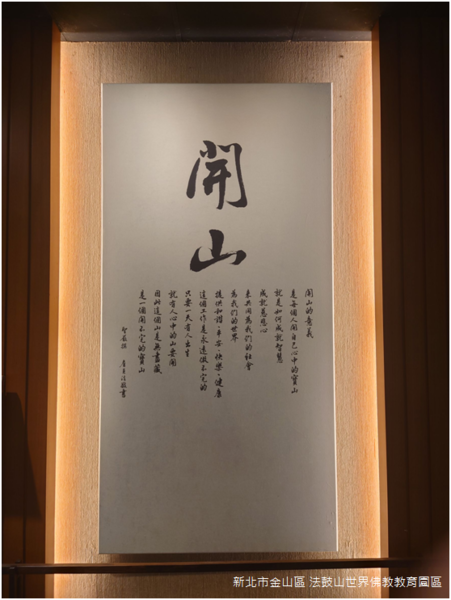 開山
開山的意義
是每個人開自己心中的寶山
就是如何成就智慧
成就慈悲心
來共同為我們的社會
為我們的世界
提供和諧、平安、快樂、健康
這個工作是永遠做不完的
只要一天有人出生
就有人心中的山要開
因此這個山是無盡藏
是一個開不完的寶山
聖嚴
新北市金山區 法鼓山世界佛教教育園區